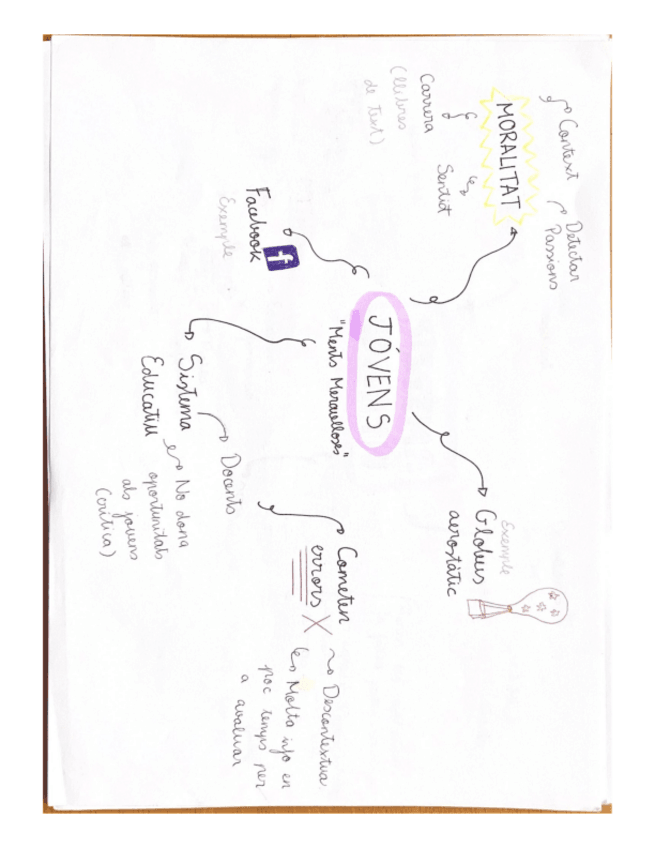 Context
Detectar
Passions
MORALITAT
Sentit
Carrera
(llibres
de text)
Facebook
f
Exemple
JÓVENS
"Ments Meravelloses"
Exemple
Globus
aerostàtic
Sistema
Educatiu
Docents
No dona
oportunitats
als jovens
(crítica)
Cometen
errors
Descontextua
Molta info en
poc temps per
a avaluar